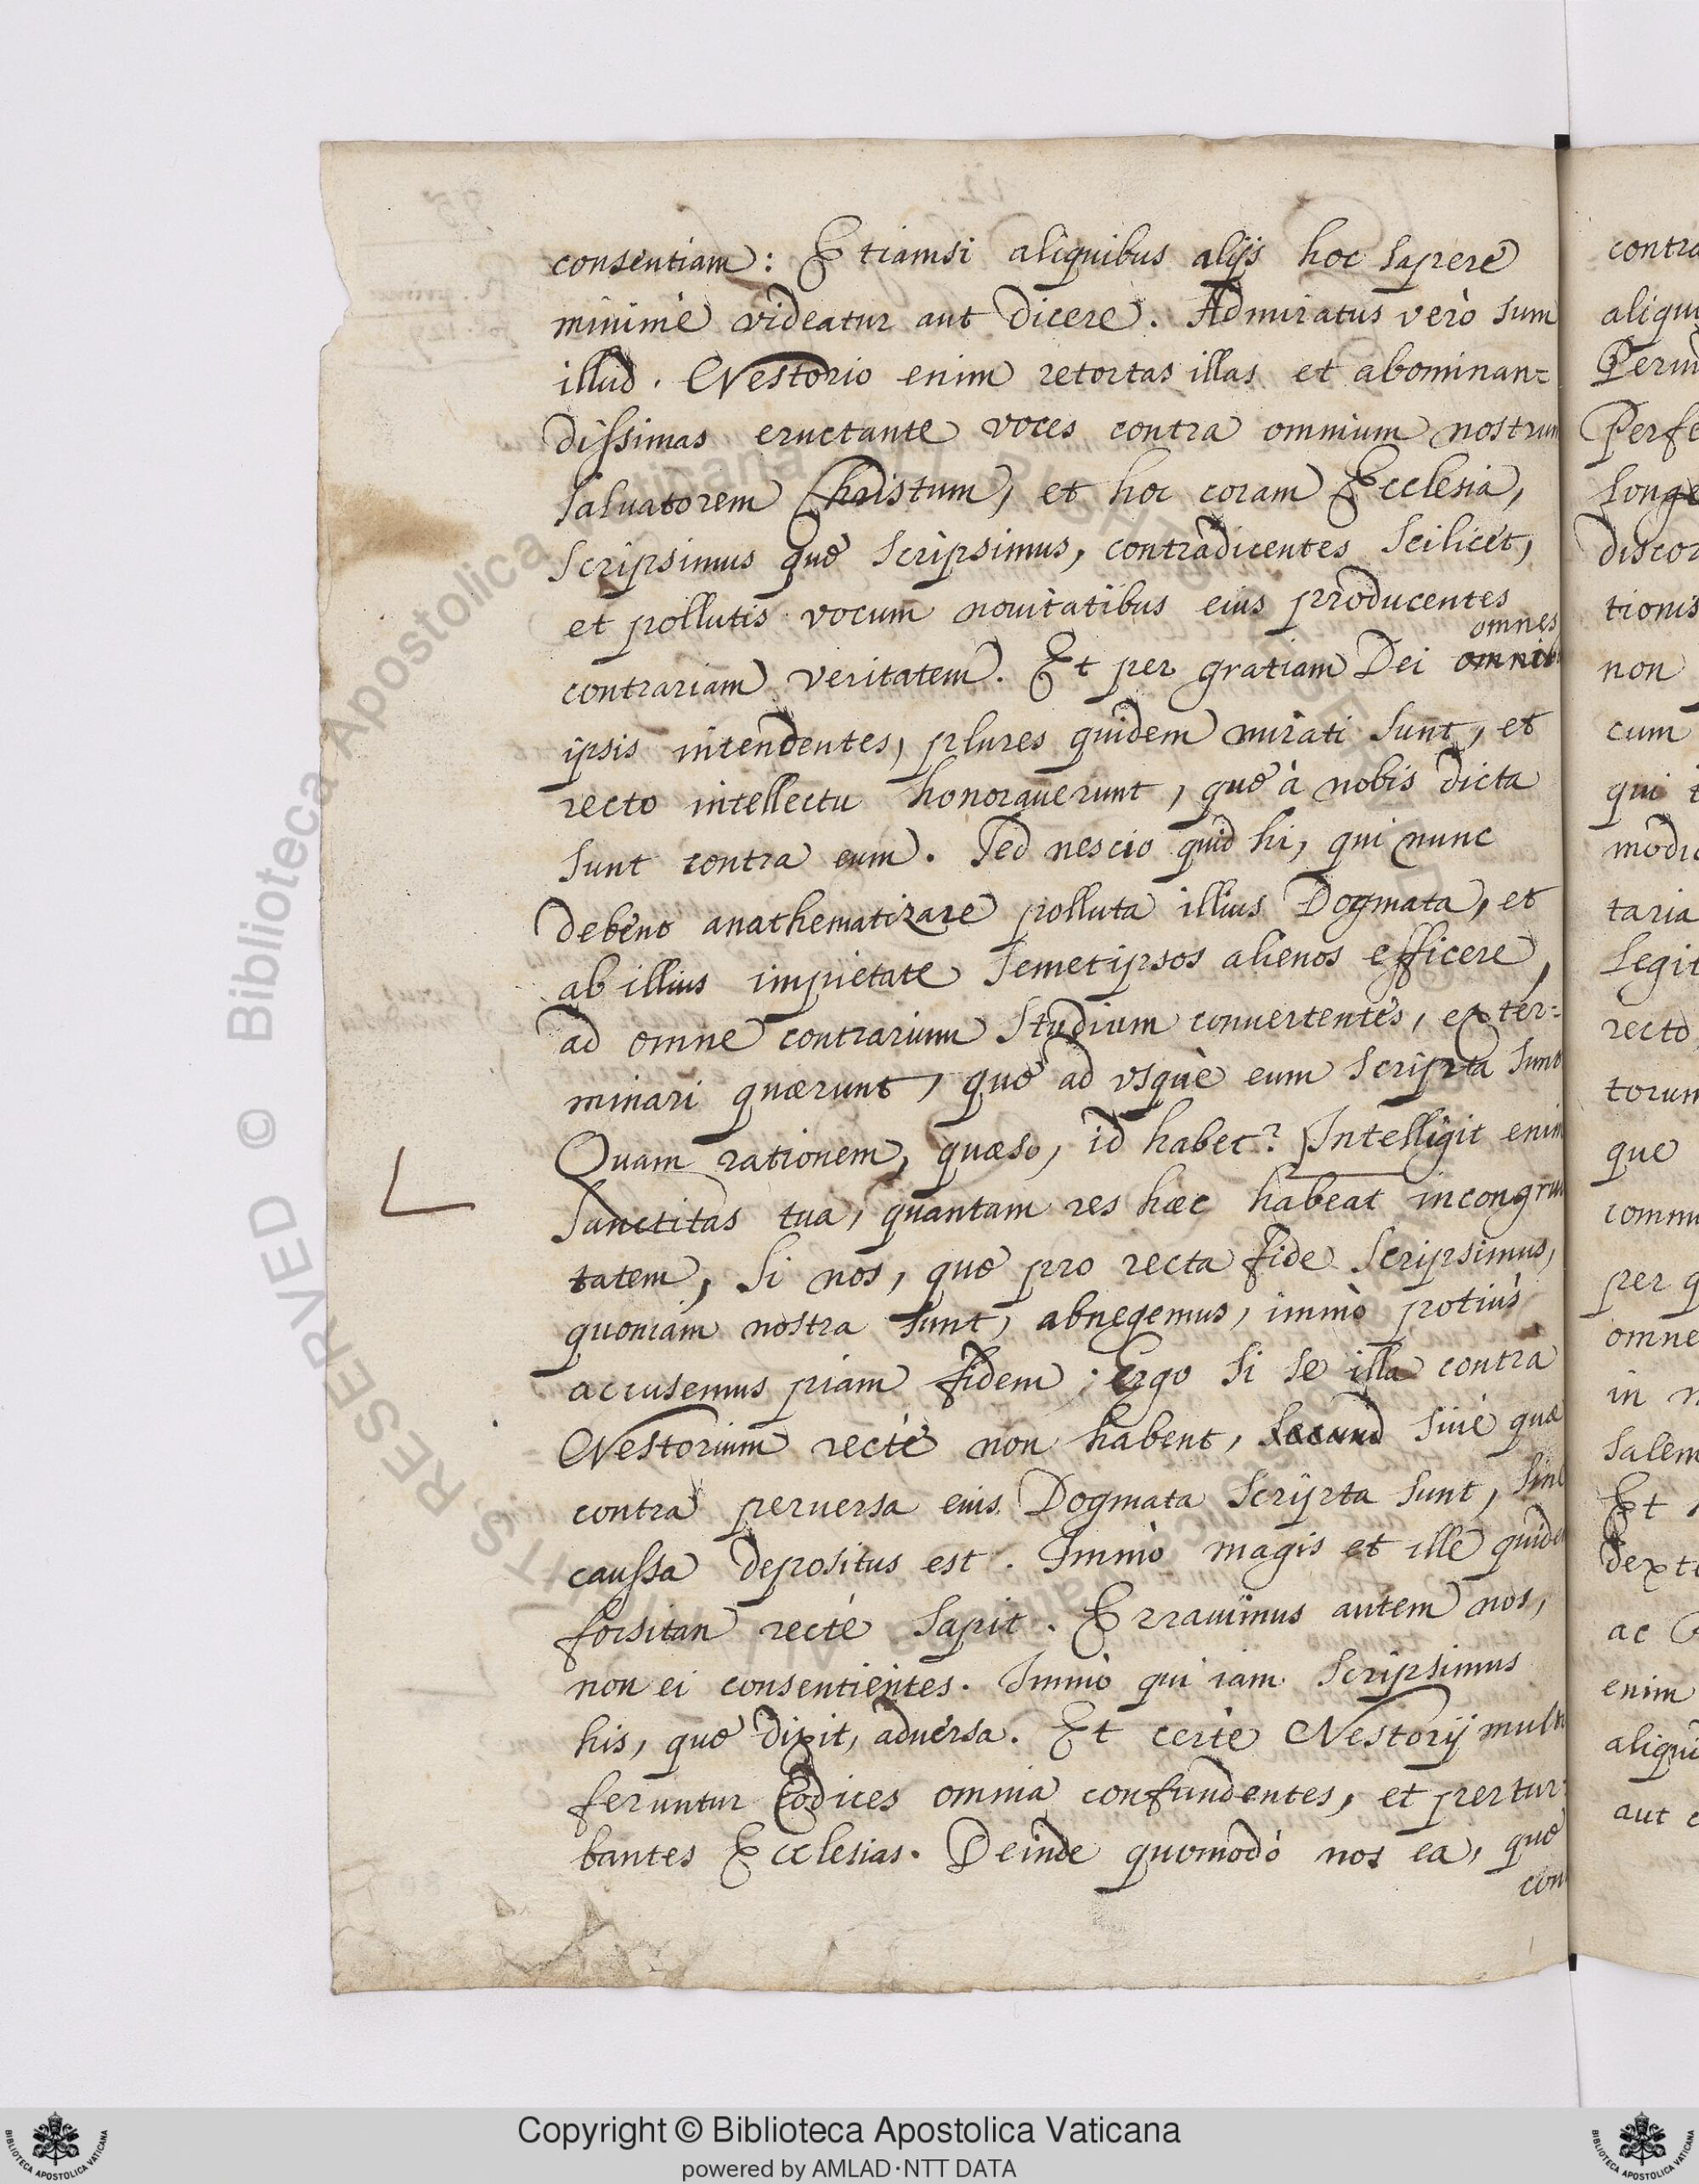 consentiam: Etiamsi aliquibus alijs hoc sapere
minimè videatur aut dicere. Admiratus verò sum
illud. Nestorio enim retortas illas et abominan=
dissimas eructante voces contra omnium nostrum
saluatorem Christum, et hoc coram Ecclesia,
scripsimus quę scripsimus, contradicentes scilicet,
et pollutis vocum nouitatibus eius producentes
omnes
contrariam veritatem. Et per gratiam Dei
ipsis intendentes, plures quidem mirati sunt, et
recto intellectu honorauerunt, quę à nobis dicta
sunt contra eum. Sed nescio quid hi, qui nunc
debent anathematizare polluta illius Dogmata, et
ab illius impietate semetipsos alienos efficere,
ad omne contrarium studium conuertentes, exter=
minari quærunt, quę ad vsquè eum scripta sunt
Quam rationem, quæso, id habet? Intelligit enim
sanctitas tua, quantam res hæc habeat incongrui
tatem, si nos, quę pro recta fide scripsimus,
quoniam nostra sunt, abnegemus, immò potiùs
accusemus piam fidem; Ergo si se illa contra
Nestorium rectè non habent, siuè quæ
contra peruersa eius Dogmata scripta sunt, sinè
caussa depositus est. Immò magis et ille quidem
forsitan rectè sapit. Erravimus autem nos,
non ei consentientes. Immò qui iam scripsimus
his, quę dixit, aduersa. Et certè Nestorij multi
feruntur Codices omnia confundentes, et pertur=
bantes Ecclesias. Deinde quomodò nos ea, quę
con
contra
aliqu
Perfe
longe
discor
tionis
non
cum
qui
modic
taria
legit
recto
torum
que
commu
per q
omne
in
salem
Et
dext
ac
enim
aliqui
aut
© Biblioteca Apostolica Vaticana ALL RIGHTS RESERVED
Copyright © Biblioteca Apostolica Vaticana
powered by AMLAD·NTT DATA
BIBLIOTECA APOSTOLICA VATICANA
BIBLIOTECA APOSTOLICA VATICANA